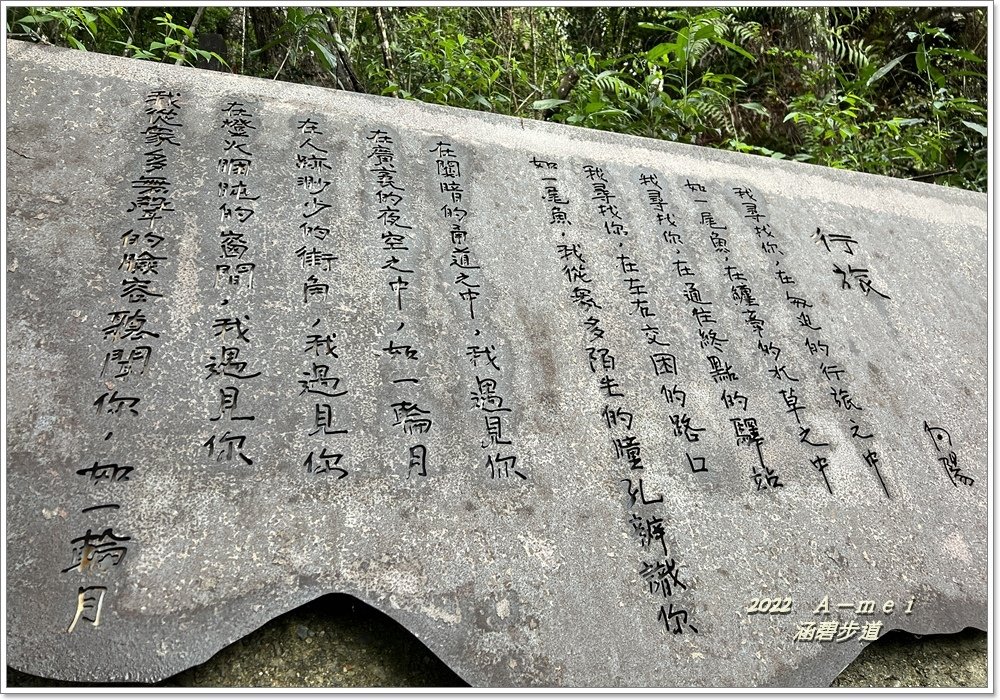 行旅
向陽
我尋找你，在匆迫的行旅之中
如一尾魚，在纏牽的水草之中
我尋找你，在通往終點的驛站
我尋找你，在左右交困的路口
如一尾魚，我從衆多陌生的瞳孔辨識你
在闃暗的甬道之中，我遇見你
在廣袤的夜空之中，如一輪月
在人跡渺少的街角，我遇見你
在燈火闌珊的窗間，我遇見你
我從衆多無聲的臉容聽聞你，如一輪月
2022 A-mei
涵碧步道